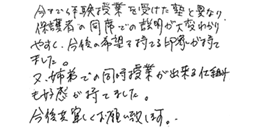 今まで体験授業を受けた塾と異なり
保護者の同席での説明が大変わかり
やすく、今後の希望を持てる印象が持て
ました。
又、姉弟での同時授業が出来る仕組
も好感が持てました。
今後共宜しくお願い致します。